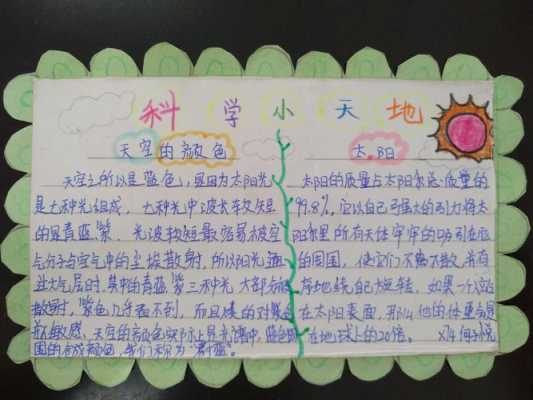 科学小天地
天空的颜色
天空之所以是蓝色,是因为太阳光
是七种光组成,七种光中波长较短
的是青蓝紫,光波较短最容易被空
气分子与空气中的尘埃散射,所以阳光
过大气层时,其中的青蓝紫三种光大部
散射,紫色几乎看不到,而且的对
敏感,天空的颜色实际上是光谱中蓝色
围的合成颜色,我们称为
太阳
太阳的质量占太阳系总质量的
99.8%,它以自己强大的引力将太
阳系里所有天体牢牢的吸引在
的周围,使它们不离不散,井有
有序地绕自己旋转,如果一个
在太阳表面,那么他的体重是
在地球上的20倍。